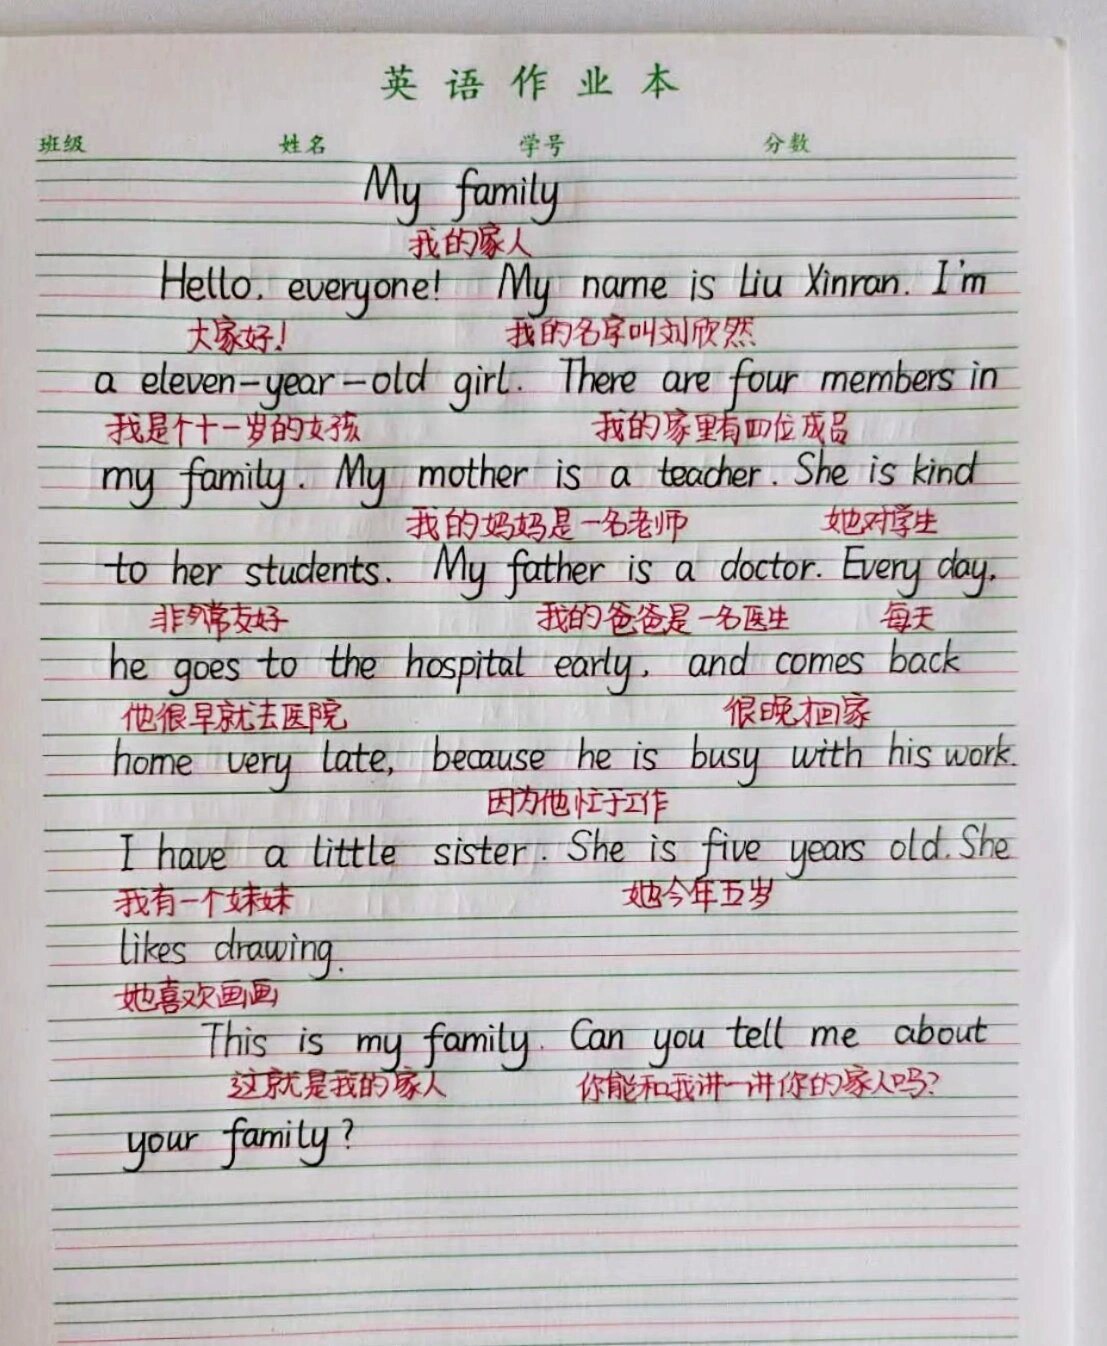 英语作业本
班级 姓名 学号 分数
My family
我的家人
Hello, everyone! My name is Liu Xinran. I'm
大家好! 我的名字叫刘欣然
a eleven-year-old girl. There are four members in
我是个十一岁的女孩 我的家里有四位成员
my family. My mother is a teacher. She is kind
我的妈妈是一名老师 她对学生
to her students. My father is a doctor. Every day,
非常友好 我的爸爸是一名医生 每天
he goes to the hospital early, and comes back
他很早就去医院 很晚才回家
home very late, because he is busy with his work.
因为他忙于工作
I have a little sister. She is five years old. She
我有一个妹妹 她今年五岁
likes drawing.
她喜欢画画
This is my family. Can you tell me about
这就是我的家人 你能和我讲一讲你的家人吗?
your family?